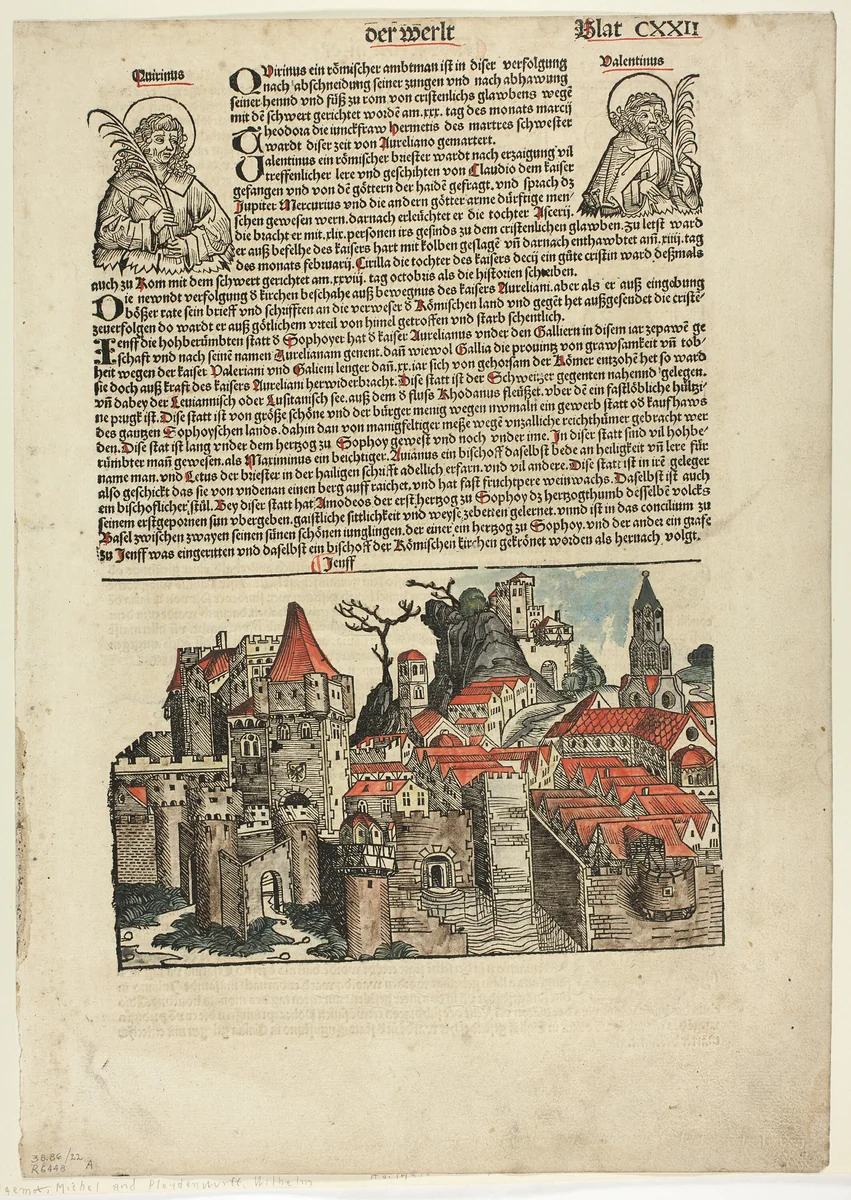 der werlt
Blat CXXII
Quirinus
Valentinus
QVirinus ein römischer ambtman ist in diser verfolgung
nach abschneidung seiner zungen vnd nach abhawung
seiner hennd vnd füß zu rom von cristenlichs glawbens wegē
mit dē schwert gerichtet wordē am .xxx. tag des monats marcij
Theodora die iunckfraw Hermetis des martres schwester
wardt diser zeit von Aureliano gemartert.
Ualentinus ein römischer briester wardt nach erzaigung vil
treffenlicher lere vnd geschihten von Claudio dem kaiser
gefangen vnd von dē göttern der haidē gefragt. vnd sprach dz
Jupiter Mercurius vnd die andern götter arme dürftige men-
schen gewesen wern. darnach erleüchtet er die tochter Asterij.
die bracht er mit .xlix. personen irs gesinds zu dem cristenlichen glawben. zu letst ward
er auß befelhe des kaisers hart mit kolben geslagē vn̄ darnach enthawbtet am̄ .xiiij. tag
des monats februarij. Cirilla die tochter des kaisers decij ein gůte cristin ward deßmals
auch zu Rom mit dem schwert gerichtet am .xxviij. tag octobris als die historien schreiben.
Die newndt verfolgung d̕ kirchen beschahe auß bewegnus des kaisers Aureliani. aber als er auß eingebung
bößer rate sein brieff vnd schrifften an die verweser d̕ Römischen land vnd gegēt het außgesendet die cristē-
zeuerfolgen do wardt er auß götlichem vrteil von himel getroffen vnd starb schentlich.
Jenff die hohberümbten statt d̕ Sophoyer hat d̕ kaiser Aurelianus vnder den Galliern in disem iar zepawē ge
schafft vnd nach seinē namen Aurelianam genent. dan̄ wiewol Gallia die prouintz von grawsamkeit vn̄ tob-
heit wegen der kaiser Valeriani vnd Galieni lenger dan̄ .xx. iar sich von gehorsam der Römer entzohē het so ward
sie doch auß kraft des kaisers Aureliani herwiderbracht. Dise statt ist der Schweitzer gegenten nahend gelegen.
vn̄ dabey der Lemannisch oder Lusitanisch see. auß dem d̕ fluss Rhodanus fleüßet. vber dē ein fastlöbliche hültzi-
ne prugk ist. Dise statt ist von größe schöne vnd der bürger menig wegen nwmaln ein gewerb statt od̕ kaufhaws
des gantzen Sophoyschen lands. dahin dan von manigfeltiger meße wegē vnzalliche reichthümer gebracht wer
den. Dise stat ist lang vnder dem hertzog zu Sophoy gewest vnd noch vnder inne. In diser statt sind vil hohbe-
rümbter man̄ gewesen. als Maximinus ein beichtiger. Auianus ein bischoff daselbst bede an heiligkeit vn̄ lere für
name man. vnd Letus der briester in der hailigen schrifft adellich erfarn. vnd vil andere. Dise statt ist in irē geleger
also geschickt das sie von vndenan einen berg auff raichet. vnd hat fast fruchtpere weinwachs. Daselbst ist auch
ein bischoflicher stůl. Bey diser statt hat Amodeos der erst hertzog zu Sophoy dz hertzogthumb desselbē volcks
seinem erstgepornen sun vbergeben. gaistliche sittlichkeit vnd weyse zebetten gelernet. vnnd ist in das concilium zu
Basel zwischen zwayen seinen sünen schönen iunglingen. der einer ein hertzog zu Sophoy. vnd der ander ein grafe
zu Jenff was eingeritten vnd daselbst ein bischoff der Römischen kirchen gekrönet worden als hernach volgt.
Jenff
38.86/22
R6448 A
Michel and Pleydenwurff, Wilhelm